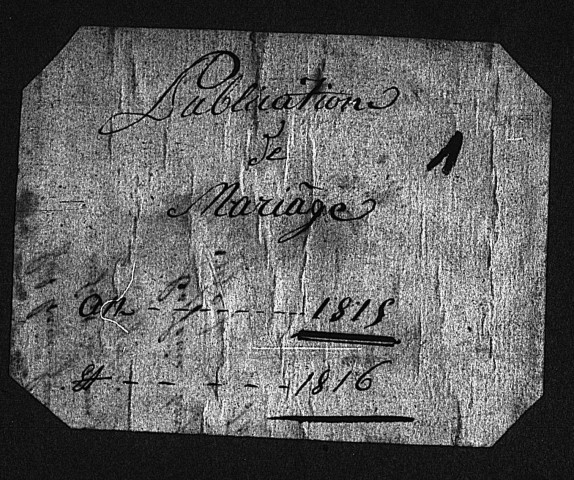 Publication
de
1
Mariage
an - - - - - - - 1815
et - - - - - - - 1816